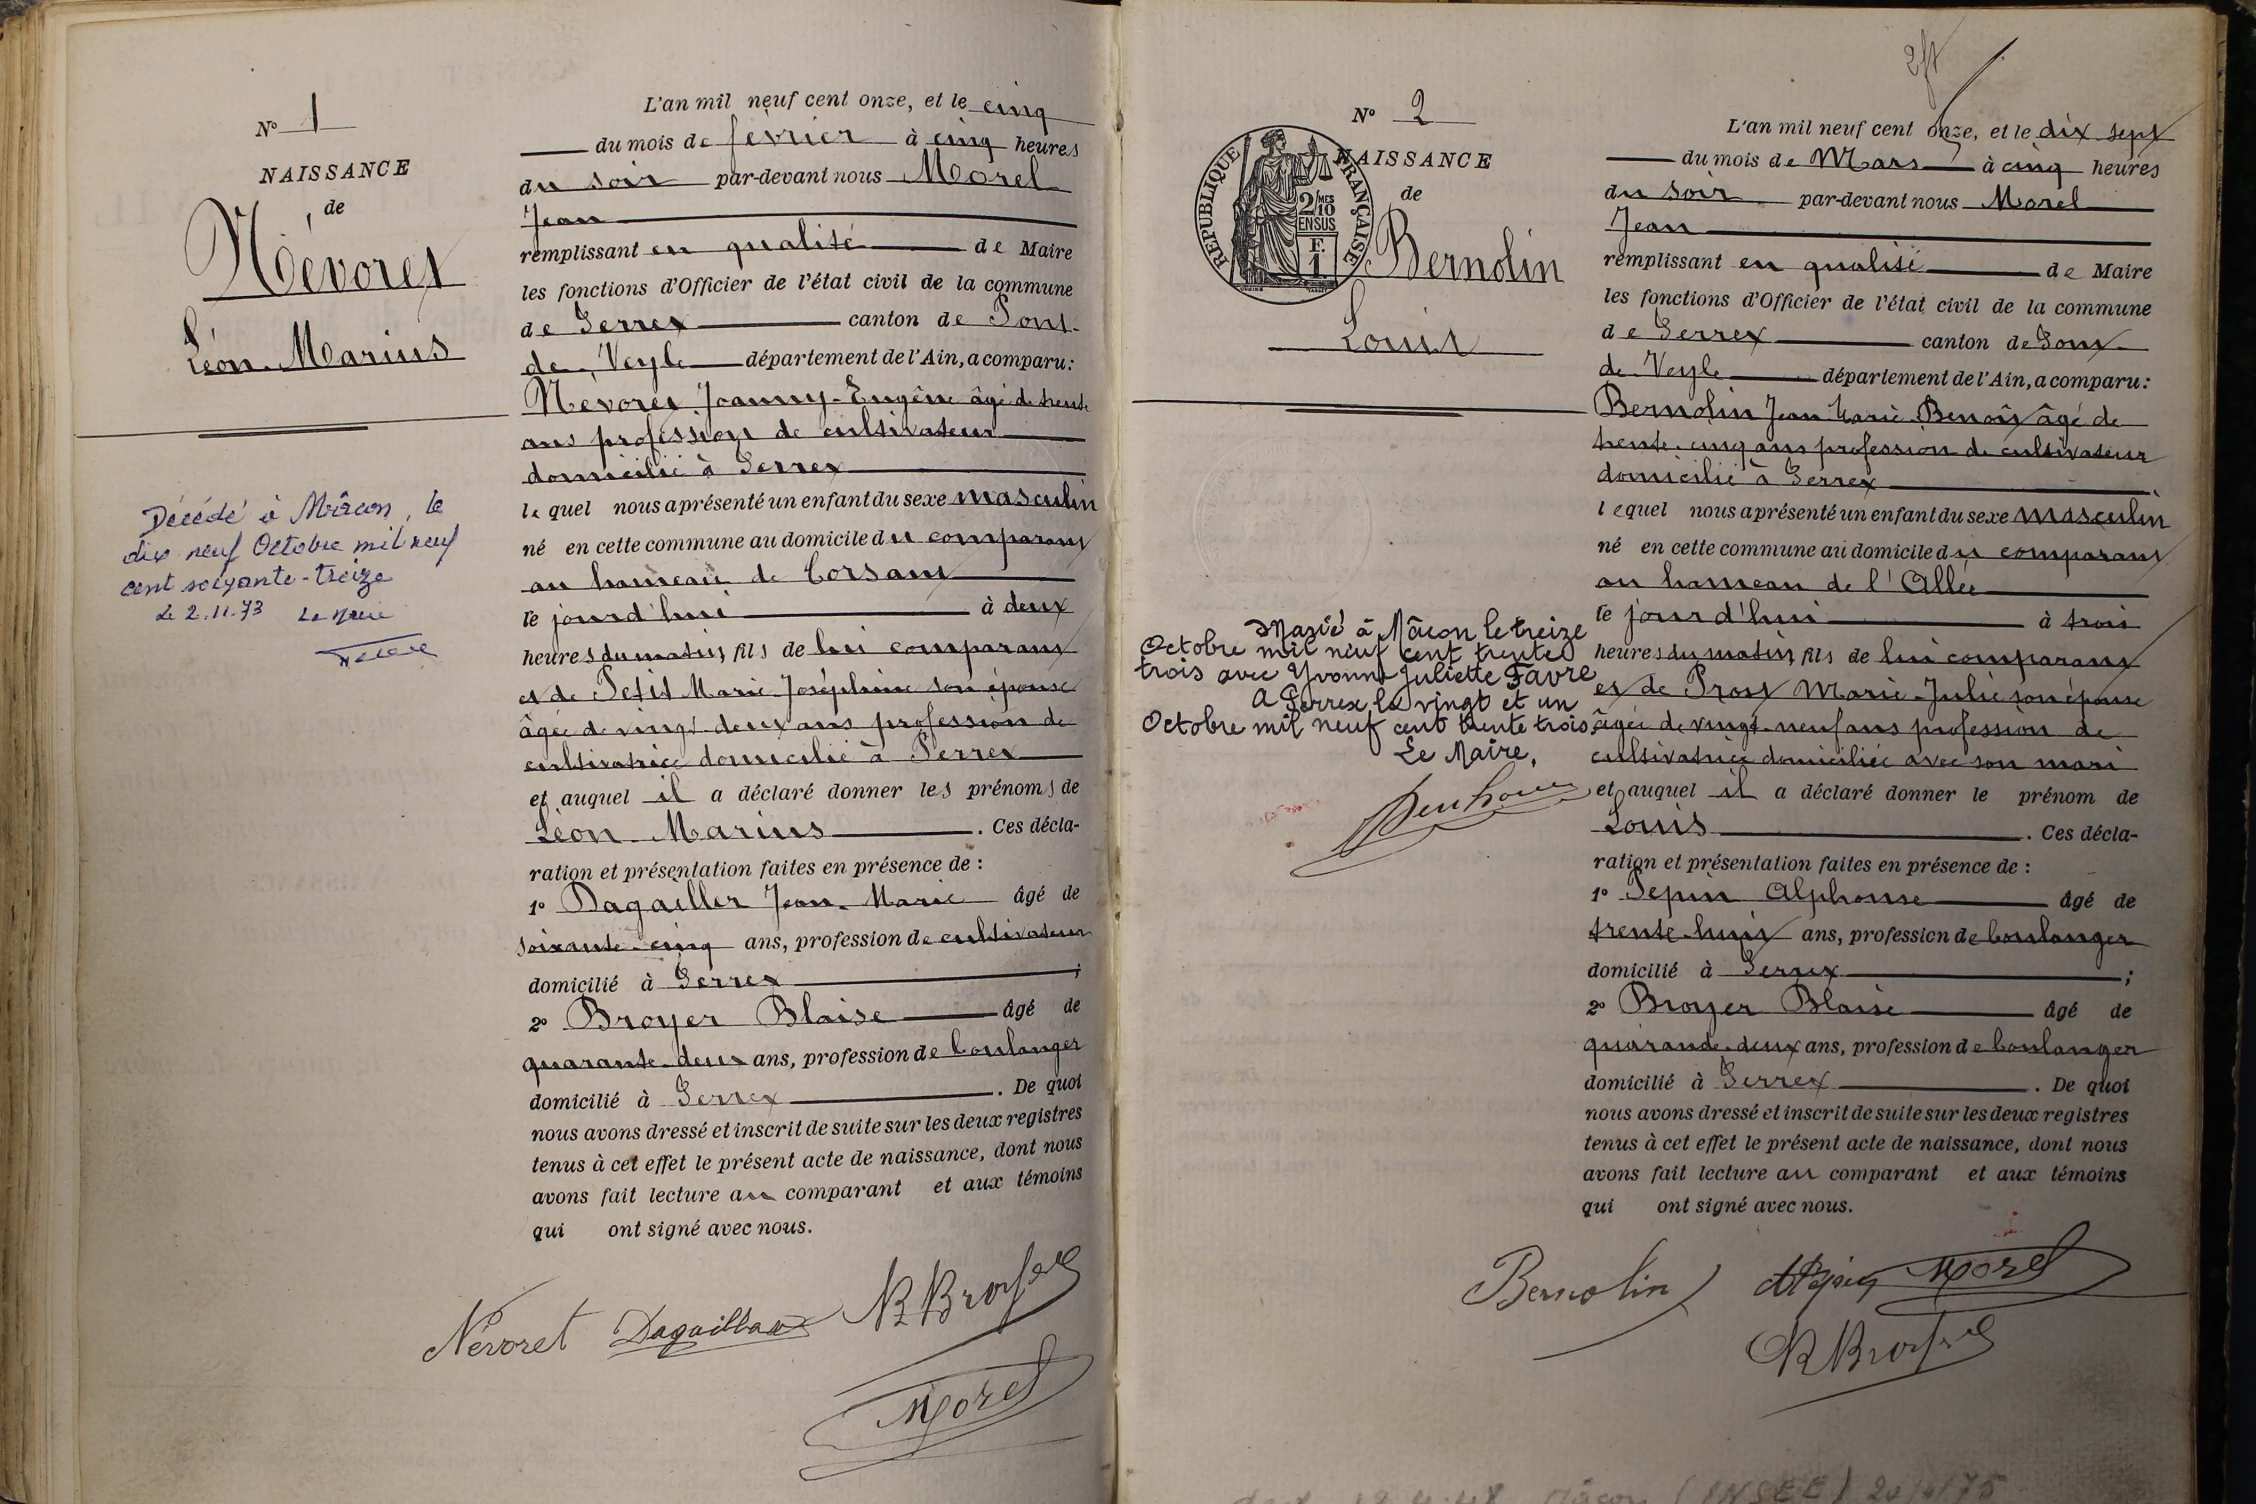 N° 1
NAISSANCE
de
Névoret
Léon Marius
Décédé à Mâcon, le
dix neuf Octobre mil neuf
cent soixante-treize
Le 2.11.73 Le Maire
L'an mil neuf cent onze, et le cinq
du mois de février à cinq heures
du soir par-devant nous Morel
Jean
remplissant en qualité de Maire
les fonctions d'Officier de l'état civil de la commune
de Perrex canton de Pont-
de-Veyle département de l'Ain, a comparu:
Nevoret Joanny-Eugène âgé de trente
ans profession de cultivateur
domicilié à Perrex
lequel nous a présenté un enfant du sexe masculin
né en cette commune au domicile du comparant
au hameau de Corsant
le jourd'hui à deux
heures du matin, fils de lui comparant
et de Petit Marie Joséphine son épouse
âgée de vingt-deux ans profession de
cultivatrice domicilié à Perrex
et auquel il a déclaré donner les prénoms de
Léon Marius. Ces décla-
ration et présentation faites en présence de :
1° Dagallier Jean-Marie âgé de
soixante-cinq ans, profession de cultivateur
domicilié à Perrex ;
2° Broyer Blaise âgé de
quarante-deux ans, profession de boulanger
domicilié à Perrex. De quoi
nous avons dressé et inscrit de suite sur les deux registres
tenus à cet effet le présent acte de naissance, dont nous
avons fait lecture au comparant et aux témoins
qui ont signé avec nous.
Névoret Dagaillier B Broyer
Morel
2ft
N° 2
NAISSANCE
de
RÉPUBLIQUE FRANÇAISE
2/10MES
EN SUS
F.
1
Bernolin
Louis
Marié à Mâcon le treize
Octobre mil neuf cent trente
trois avec Yvonne Juliette Favre
A Perrex le vingt et un
Octobre mil neuf cent trente trois.
Le Maire,
L'an mil neuf cent onze, et le dix-sept
du mois de Mars à cinq heures
du soir par-devant nous Morel
Jean
remplissant en qualité de Maire
les fonctions d'Officier de l'état civil de la commune
de Perrex canton de Pont-
de-Veyle département de l'Ain, a comparu:
Bernolin Jean Marie Benoît âgé de
trente-cinq ans profession de cultivateur
domicilié à Perrex
lequel nous a présenté un enfant du sexe masculin
né en cette commune au domicile du comparant
au hameau de l'Allée
le jourd'hui à trois
heures du matin, fils de lui comparant
et de Prost Marie-Julie son épouse
âgée de vingt-neuf ans profession de
cultivatrice domiciliée avec son mari
et auquel il a déclaré donner le prénom de
Louis. Ces décla-
ration et présentation faites en présence de :
1° Pepin Alphonse âgé de
trente-huit ans, profession de boulanger
domicilié à Perrex ;
2° Broyer Blaise âgé de
quarande-deux ans, profession de boulanger
domicilié à Perrex. De quoi
nous avons dressé et inscrit de suite sur les deux registres
tenus à cet effet le présent acte de naissance, dont nous
avons fait lecture au comparant et aux témoins
qui ont signé avec nous.
Bernolin A Pepin Morel
B Broyer
Mâcon (INSEE) 20/4/75